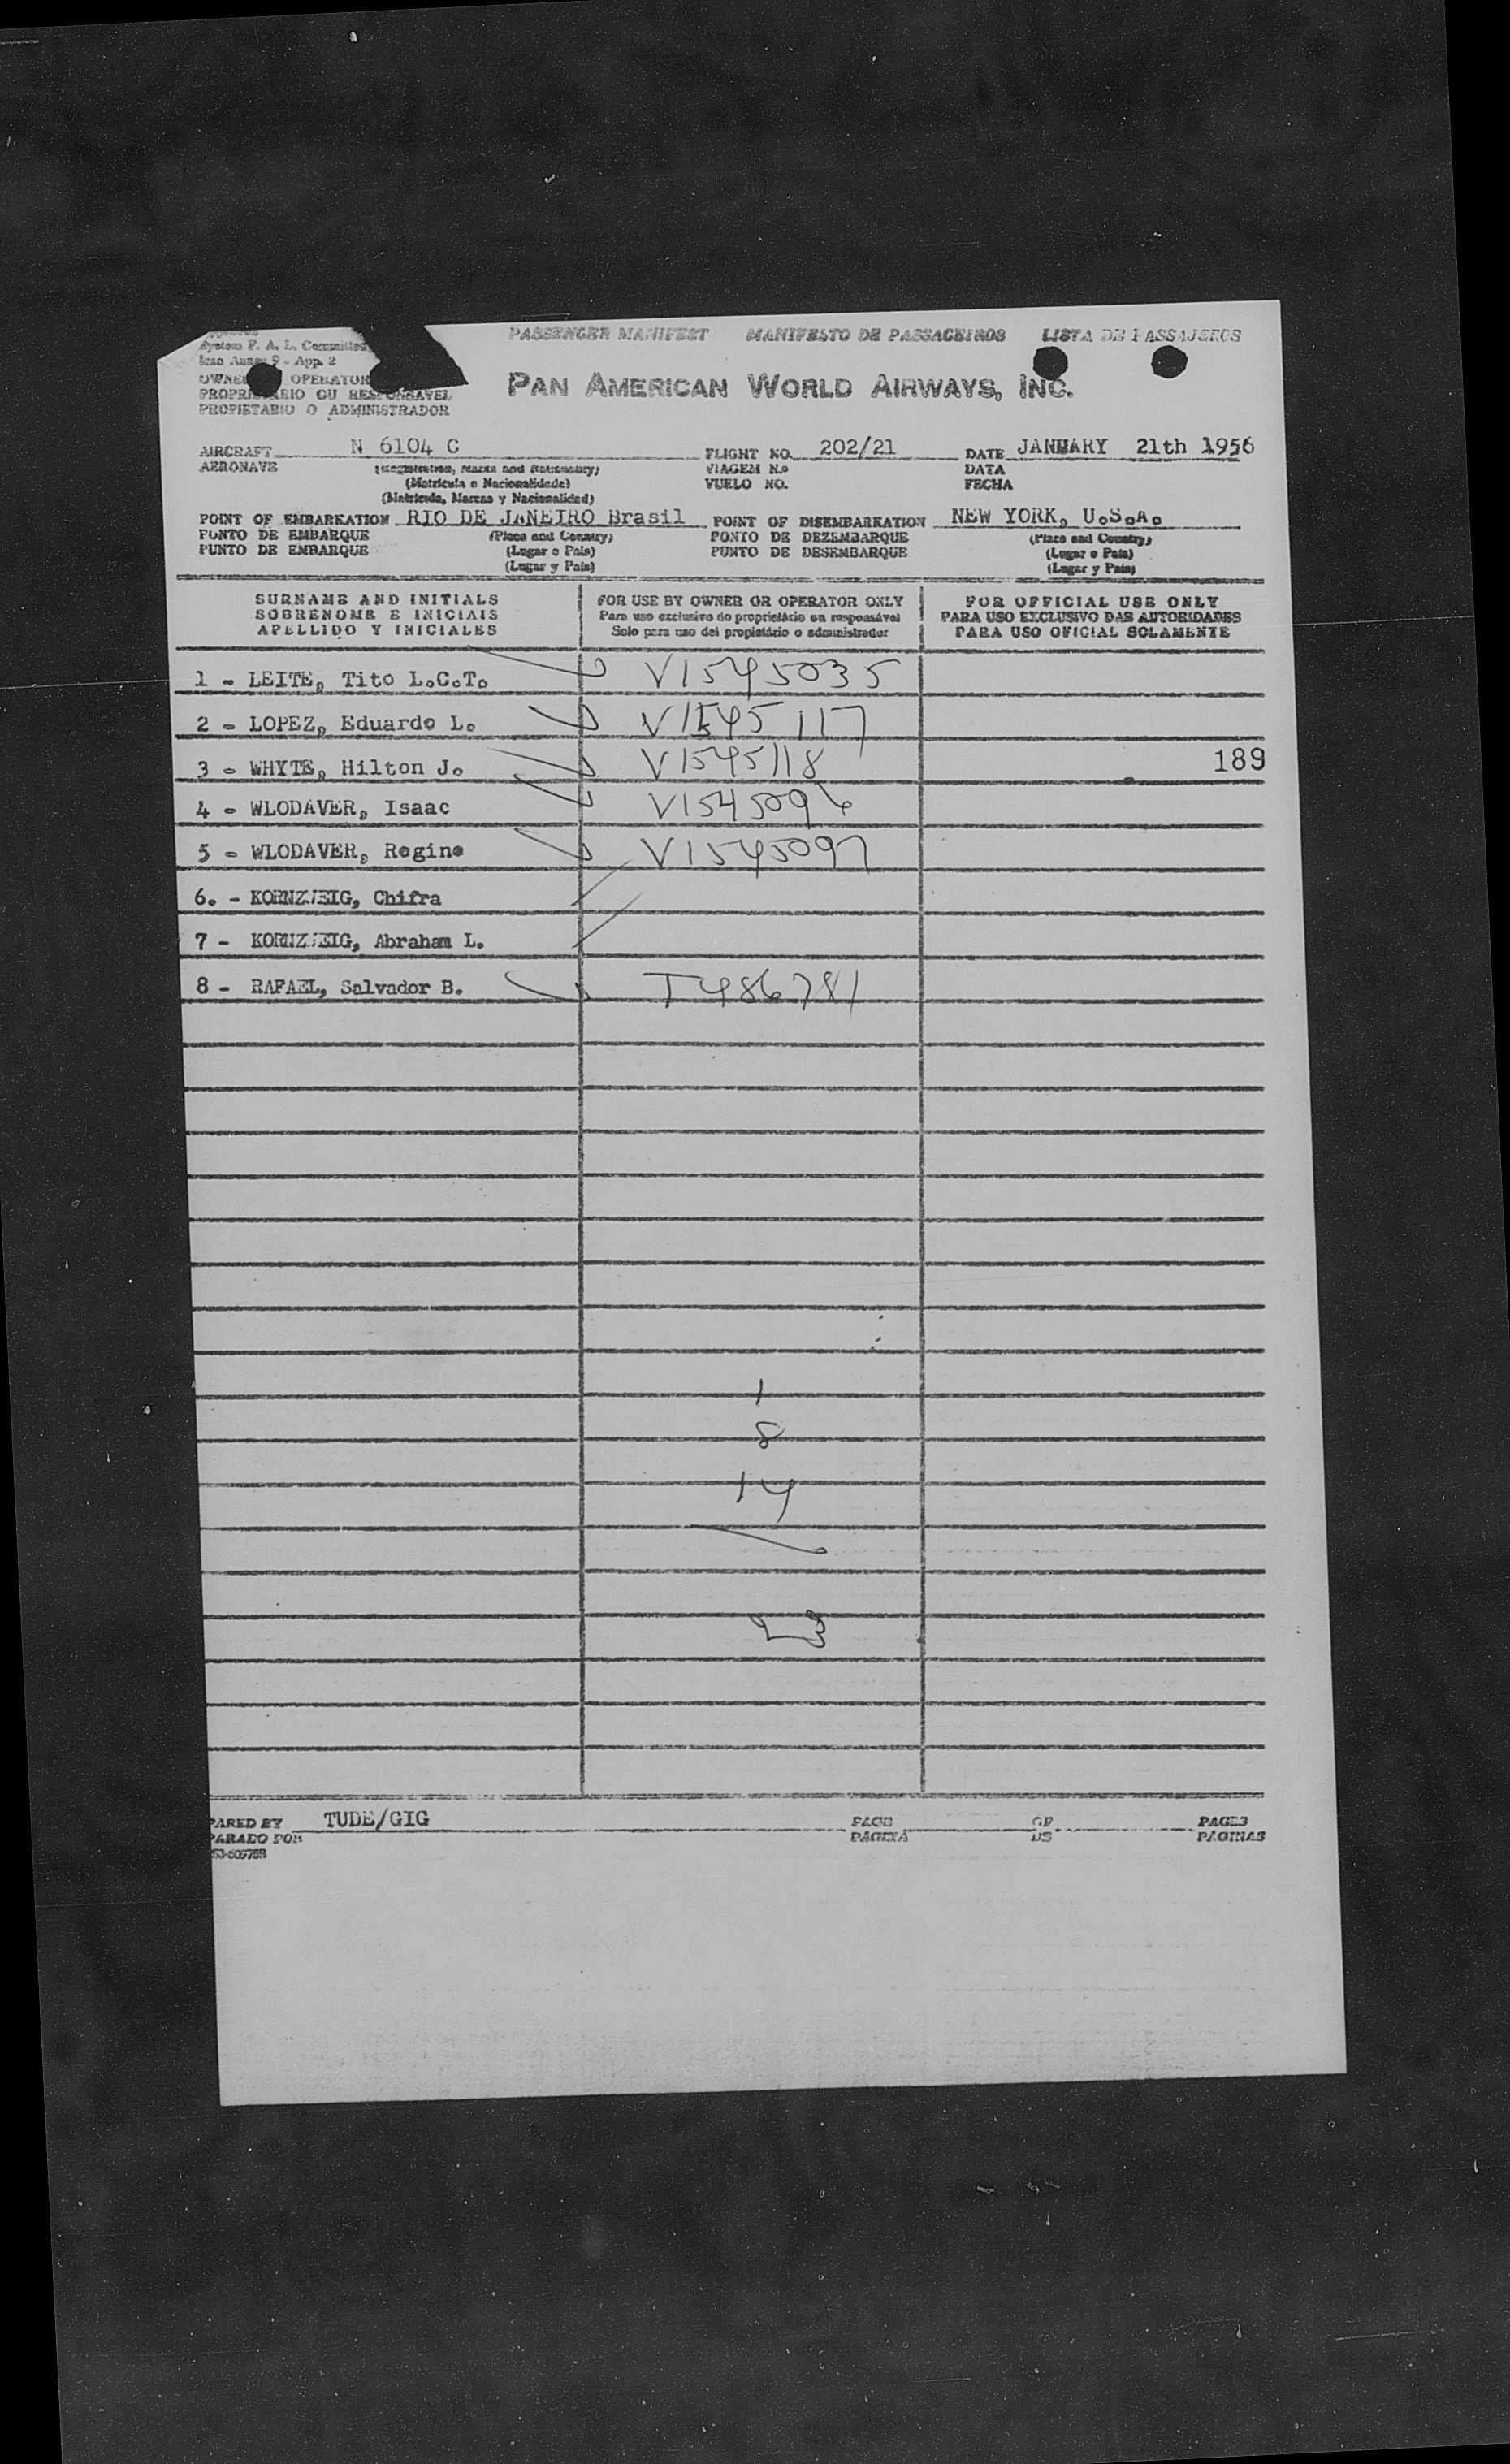 PASSENGER MANIFEST MANIFESTO DE PASSAGEIROS LISTA DE PASSAJEROS
System F. A. L. Committee
Icao Annex 9 - App. 2
OPERATOR
PROPRIETARIO OU RESPONSAVEL
PROPIETARIO O ADMINISTRADOR
PAN AMERICAN WORLD AIRWAYS, INC.
AIRCRAFT N 6104 C FLIGHT NO. 202/21 DATE JANUARY 21th 1956
AERONAVE (Registration, Marks and Nationality) VIAGEM N.o DATA
(Matricula e Nacionalidade) VUELO NO. FECHA
(Matricula, Marcas y Nacionalidad)
POINT OF EMBARKATION RIO DE JANEIRO Brasil POINT OF DISEMBARKATION NEW YORK, U.S.A.
PONTO DE EMBARQUE (Place and Country) PONTO DE DEZEMBARQUE (Place and Country)
PUNTO DE EMBARQUE (Lugar e Pais) PUNTO DE DESEMBARQUE (Lugar e Pais)
(Lugar y Pais) (Lugar y Pais)
SURNAME AND INITIALS FOR USE BY OWNER OR OPERATOR ONLY FOR OFFICIAL USE ONLY
SOBRENOME E INICIAIS Para uso exclusivo do proprietário ou responsável PARA USO EXCLUSIVO DAS AUTORIDADES
APELLIDO Y INICIALES Solo para uso del propietário o administrador PARA USO OFICIAL SOLAMENTE
1 - LEITE, Tito L.C.T. V1545035
2 - LOPEZ, Eduardo L. V1545117
3 - WHYTE, Hilton J. V1545118 189
4 - WLODAVER, Isaac V1545096
5 - WLODAVER, Regina V1545097
6. - KORNZWEIG, Chifra
7 - KORNZWEIG, Abraham L.
8 - RAFAEL, Salvador B. T486781
1
8
14
23
PARED BY TUDE/GIG PAGE OF PAGES
PARADO POR PAGINA DE PAGINAS